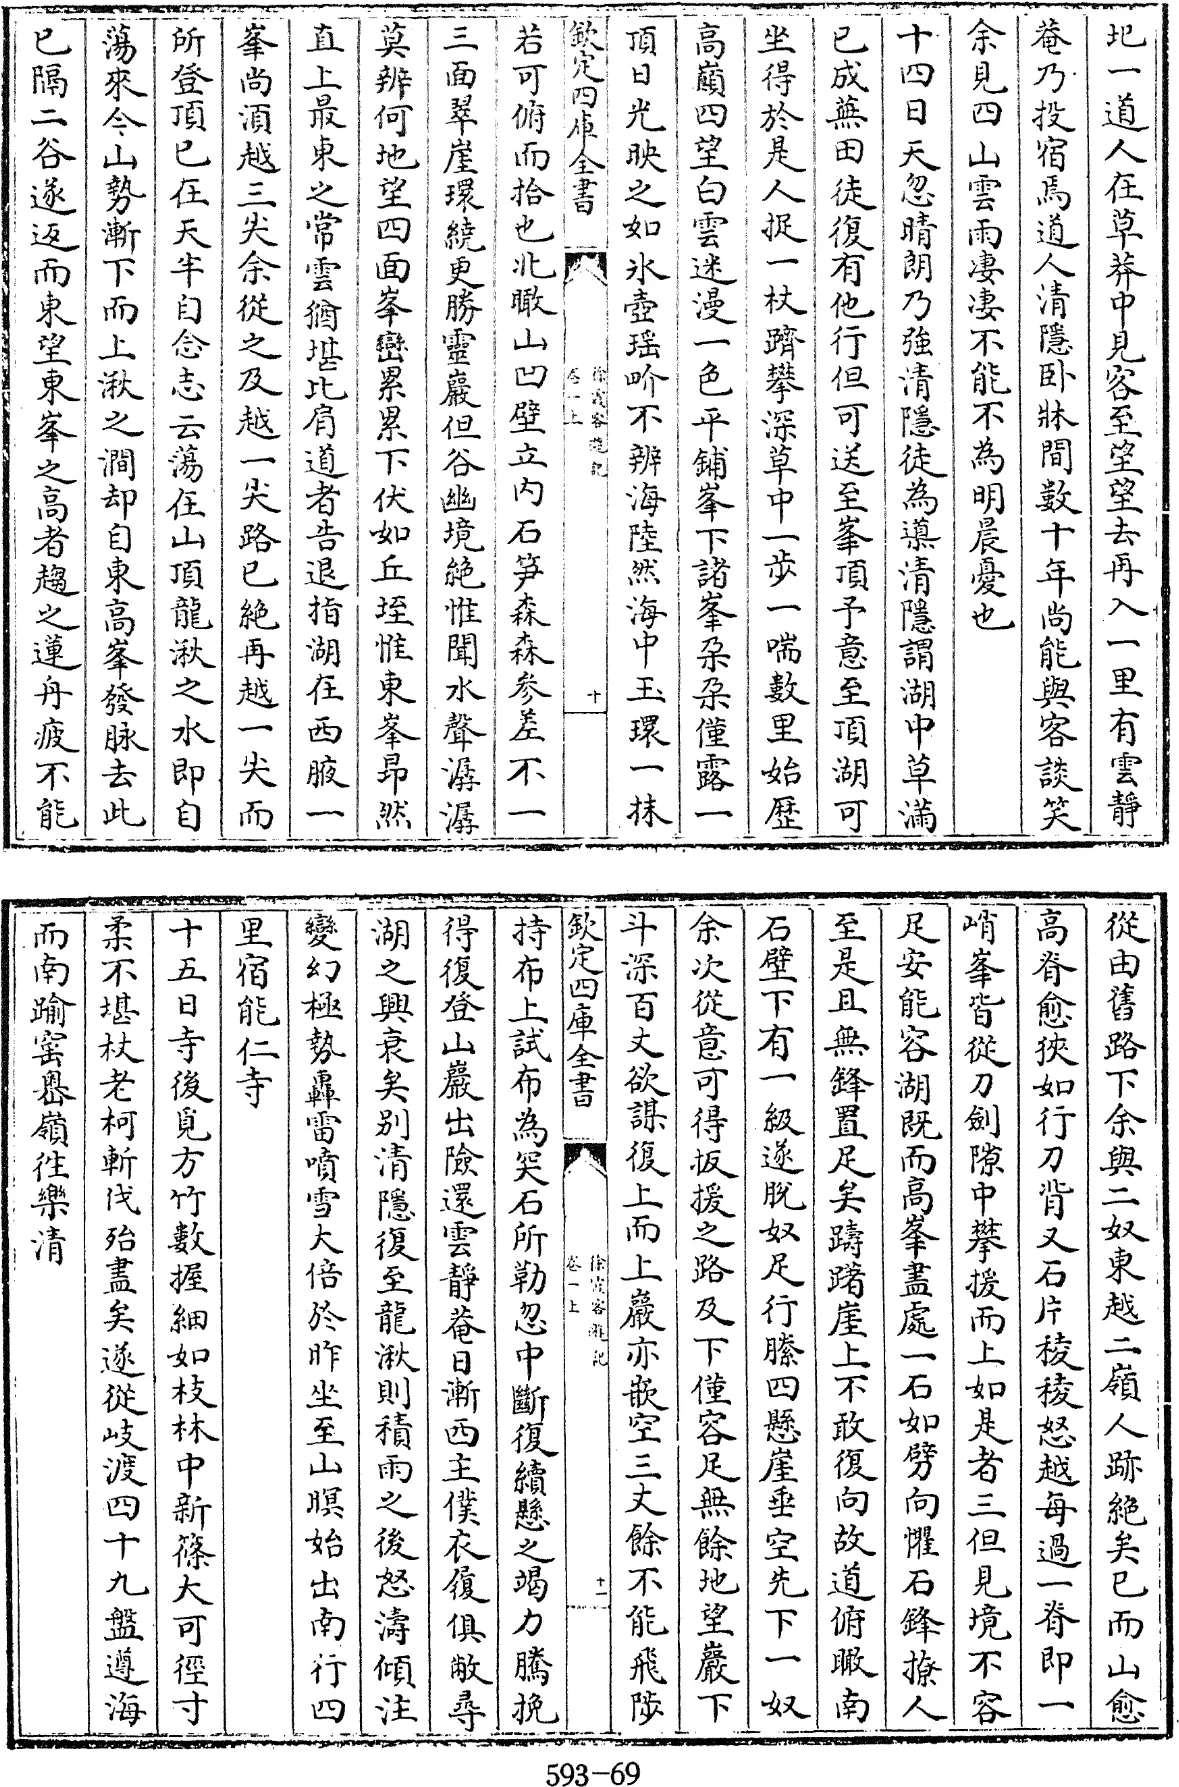 圯一道人在草莽中見客至望望去再入一里有雲靜
菴乃投宿焉道人清隱卧牀間數十年尚能與客談笑
余見四山雲雨淒淒不能不為明晨憂也
十四日天忽晴朗乃強清隱徒為導清隱謂湖中草滿
已成蕪田徒復有他行但可送至峯頂予意至頂湖可
坐得於是人捉一杖躋攀深草中一步一喘數里始歷
高巔四望白雲迷漫一色平鋪峯下諸峯朶朶僅露一
頂日光映之如氷壺瑶界不辨海陸然海中玉環一抹
欽定四庫全書
徐霞客遊記
卷一上
十
若可俯而拾也北瞰山凹壁立内石笋森森參差不一
三面翠崖環繞更勝靈巖但谷幽境絶惟聞水聲潺潺
莫辨何地望四面峯巒累累下伏如丘垤惟東峯昂然
直上最東之常雲猶堪比肩道者告退指湖在西腋一
峯尚湏越三尖余從之及越一尖路已絶再越一尖而
所登頂已在天半自念志云蕩在山頂龍湫之水即自
蕩來今山勢漸下而上湫之澗却自東高峯發脉去此
已隔二谷遂返而東望東峯之高者趨之蓮舟疲不能
從由舊路下余與二奴東越二嶺人跡絶矣已而山愈
高脊愈狹如行刀背又石片稜稜怒越每過一脊即一
峭峯皆從刀劍隙中攀援而上如是者三但見境不容
足安能容湖既而高峯盡處一石如劈向懼石鋒撩人
至是且無鋒置足矣躊躇崖上不敢復向故道俯瞰南
石壁下有一級遂脱奴足行縢四懸崖垂空先下一奴
余次從意可得扳援之路及下僅容足無餘地望巖下
斗深百丈欲謀復上而上巖亦嵌空三丈餘不能飛陟
欽定四庫全書
徐霞客遊記
卷一上
十一
持布上試布為突石所勒忽中斷復續懸之竭力騰挽
得復登山巖出險還雲靜菴日漸西主僕衣履俱敝尋
湖之興衰矣别清隱復至龍湫則積雨之後怒濤傾注
變幻極勢轟雷噴雪大倍於昨坐至山暝始出南行四
里宿能仁寺
十五日寺後覓方竹數握細如枝林中新篠大可徑寸
柔不堪杖老柯斬伐殆盡矣遂從岐渡四十九盤遵海
而南踰窰嶴嶺往樂清
593-69